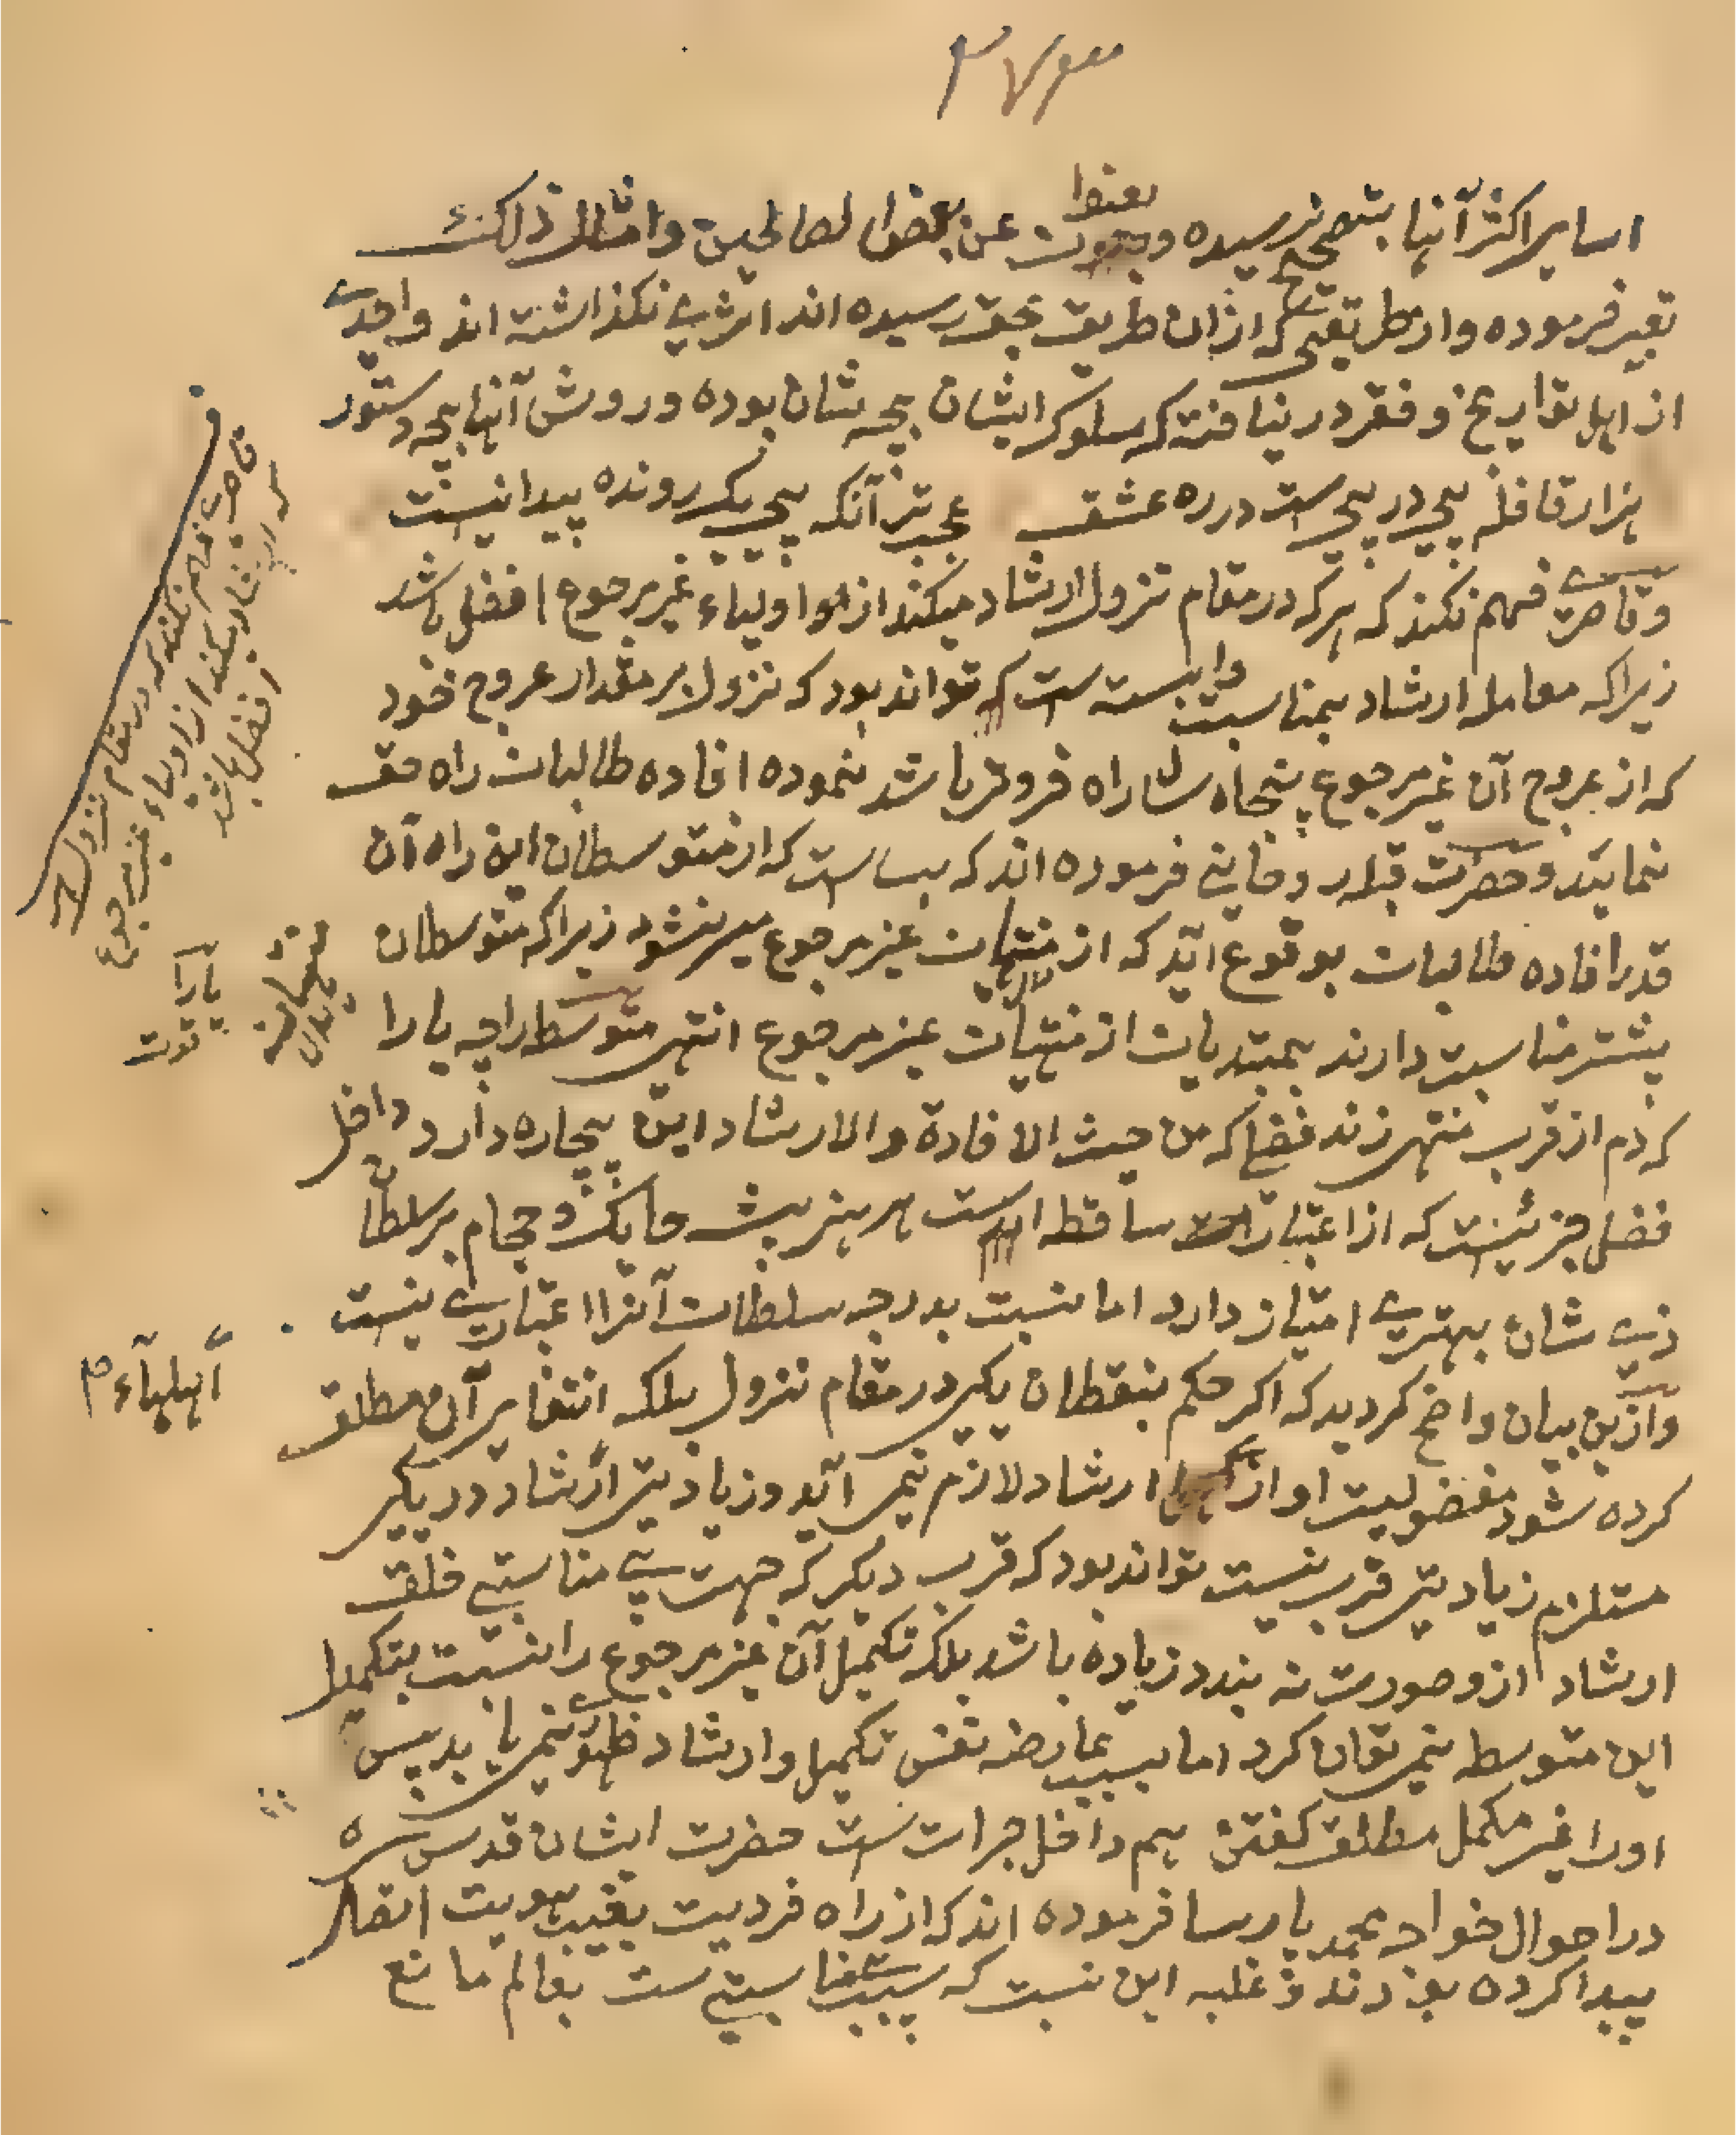 ۳۷۳
اسایر اکثر آنها بتصحیح نرسیده و عن بعض الصالحین وامثال ذلک
تعبیر فرموده واز طریقی که ازان طریق بحق رسیده اند اثری نکذاشته اند واحدی
از اهل تواریخ و فقر درنیافته که سلوک ایشان بچه شان بوده و روش آنها بچه دستور
هزار قافله پی در پی است در ره عشق عجبتر آنکه پی یک رونده پیدا نیست
وقاصری فهم نکند که هرکه در مقام نزول ارشاد میکند از اولیاء غیر مرجوع افضل باشد
زیراکه معامله ارشاد بمناسبت وابسته است که تواند بود که نزول بر مقدار عروج خود
که از عروج آن غیر مرجوع پنجاه ساله راه فروتر باشد نموده افاده طالبان راه حق
نماید و حضرت قبله فرموده اند که بسا است که از متوسطان این راه آن
قدر افاده طالبان بوقوع آید که از منتهیان غیر مرجوع میسر نشود زیراکه متوسطان
بیشتر مناسبت دارند بمبتدیان از منتهیان غیر مرجوع انتهی متوسط را چه یارا
که دم از قرب منتهی زند فضلی که من حیث الافادة والارشاد این بیچاره دارد داخل
فضل جزئیست که از اعتبار ساقط است هر هنر پیشه حایک و حجام بر سلطان
ذی شان بهتری امتیاز دارد اما نسبت بدرجه سلطان آنرا اعتباری نیست
وازین بیان واضح کردید که اکر حکم بنقصان یکی در مقام نزول بلکه انتفایر آن مطلق
کرده شود مفضولیت او از ارشاد لازم نمی آید و زیادتی ارشاد در یکی
مستلزم زیادتی قرب نیست تواند بود که قرب دیکر که جهت بی مناسبتی خلق
ارشاد ازو صورت نه بندد زیاده باشد بلکه تکمیل آن غیر مرجوع را نسبت بتکمیل
این متوسط نمی توان کرد اما بسبب عارضه نفس تکمیل وارشاد ظهور نمی یابد پس
اورا غیر مکمل مطلق کفتن هم داخل جرات است حضرت ایشان قدس سره
در احوال خواجه محمد پارسا فرموده اند که از راه فردیت بغیب هویت اتصال
پیدا کرده بودند و غلبه این نسبت که سبب بی مناسبتی ست بعالم مانع
قاصری فهم نکند که در مقام نزول
ارشاد میکند از اولیاء غیر مرجوع
افضل باشد
یارا
قوت